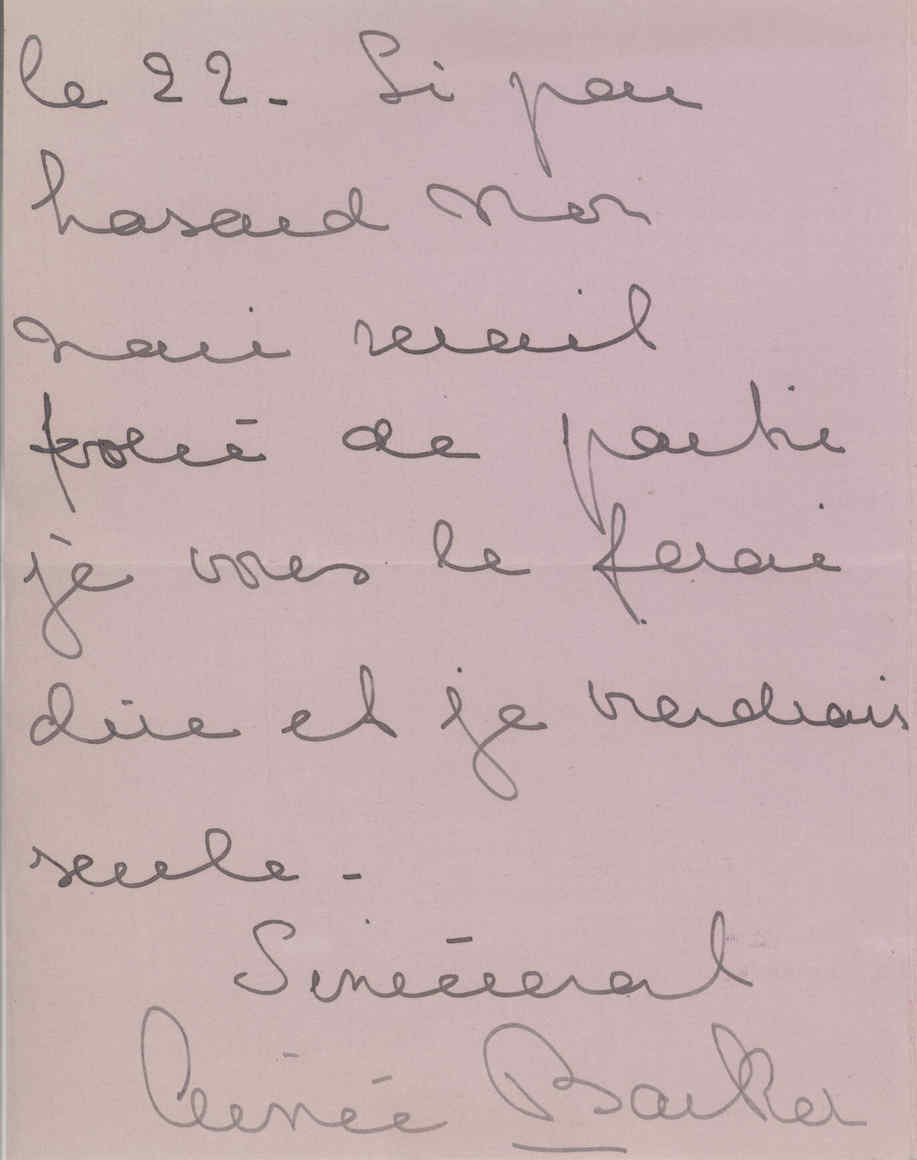 le 22 - Si par
hasard mon
mari serait
forcé de partir
je vous le ferai
dire et je viendrais
seule -
Sincèrement
Aimée Barker